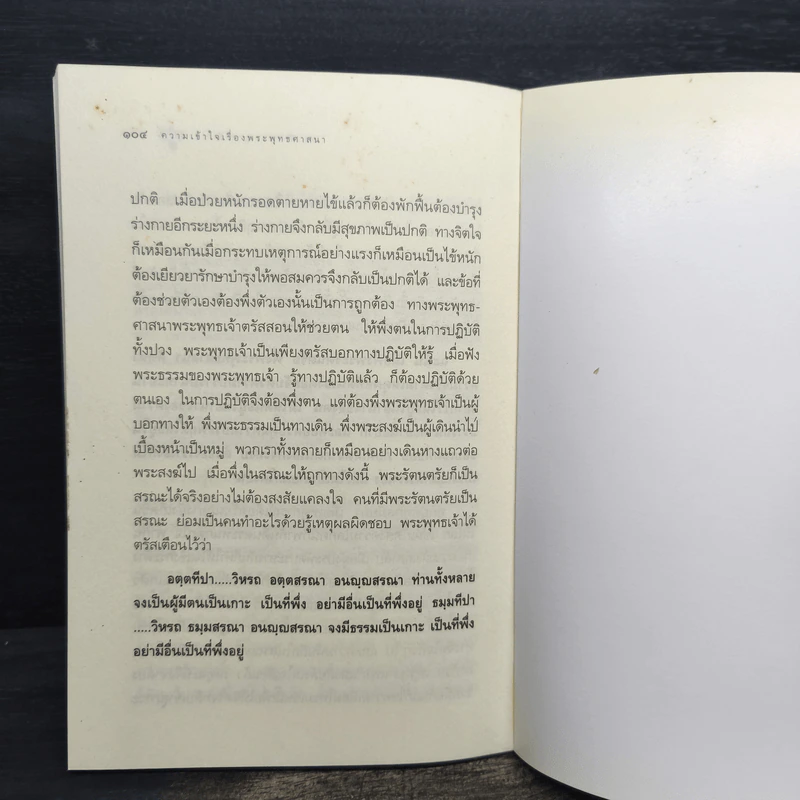 ๑๐๔ ความเข้าใจเรื่องพระพุทธศาสนา
ปกติ เมื่อป่วยหนักรอดตายหายไข้แล้วก็ต้องพักฟื้นต้องบำรุง
ร่างกายอีกระยะหนึ่ง ร่างกายจึงกลับมีสุขภาพเป็นปกติ ทางจิตใจ
ก็เหมือนกันเมื่อกระทบเหตุการณ์อย่างแรงก็เหมือนเป็นไข้หนัก
ต้องเยียวยารักษาบำรุงให้พอสมควรจึงกลับเป็นปกติได้ และข้อที่
ต้องช่วยตัวเองต้องพึ่งตัวเองนั้นเป็นการถูกต้อง ทางพระพุทธ-
ศาสนาพระพุทธเจ้าตรัสสอนให้ช่วยตน ให้พึ่งตนในการปฏิบัติ
ทั้งปวง พระพุทธเจ้าเป็นเพียงตรัสบอกทางปฏิบัติให้รู้ เมื่อฟัง
พระธรรมของพระพุทธเจ้า รู้ทางปฏิบัติแล้ว ก็ต้องปฏิบัติด้วย
ตนเอง ในการปฏิบัติจึงต้องพึ่งตน แต่ต้องพึ่งพระพุทธเจ้าเป็นผู้
บอกทางให้ พึ่งพระธรรมเป็นทางเดิน พึ่งพระสงฆ์เป็นผู้เดินนำไป
เบื้องหน้าเป็นหมู่ พวกเราทั้งหลายก็เหมือนอย่างเดินหางแถวต่อ
พระสงฆ์ไป เมื่อพึ่งในสรณะให้ถูกทางดังนี้ พระรัตนตรัยก็เป็น
สรณะได้จริงอย่างไม่ต้องสงสัยแคลงใจ คนที่มีพระรัตนตรัยเป็น
สรณะ ย่อมเป็นคนทำอะไรด้วยรู้เหตุผลผิดชอบ พระพุทธเจ้าได้
ตรัสเตือนไว้ว่า
อตฺตทีปา.....วิหรถ อตฺตสรณา อนญฺญสรณา ท่านทั้งหลาย
จงเป็นผู้มีตนเป็นเกาะ เป็นที่พึ่ง อย่ามีอื่นเป็นที่พึ่งอยู่ ธมฺมทีปา
.....วิหรถ ธมฺมสรณา อนญฺญสรณา จงมีธรรมเป็นเกาะ เป็นที่พึ่ง
อย่ามีอื่นเป็นที่พึ่งอยู่